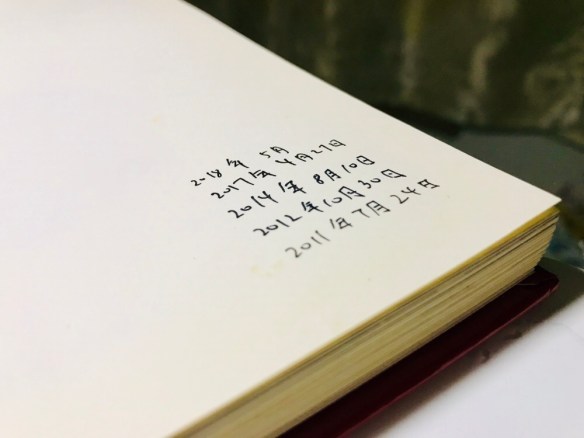 2018年 5月
2017年 4月27日
2014年 8月10日
2012年10月30日
2011年7月24日